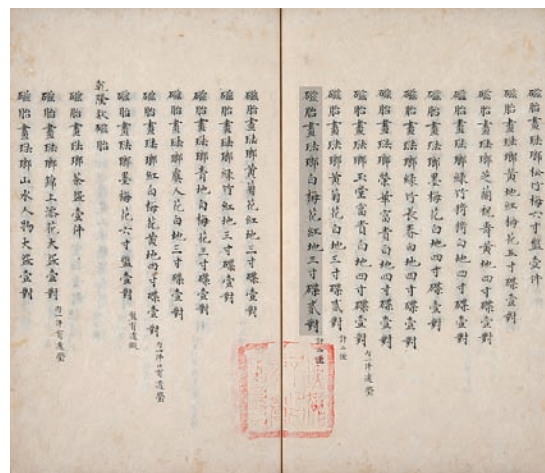 磁胎畫琺瑯松竹梅壹件
磁胎畫琺瑯黃地紅梅花五寸碟壹對
磁胎畫琺瑯芝蘭祝壽黃地四寸碟壹對
磁胎畫琺瑯綠竹猗猗白地四寸碟壹對
磁胎畫琺瑯墨梅花白地四寸碟壹對
磁胎畫琺瑯綠竹長春白地四寸碟壹對
磁胎畫琺瑯榮華富貴白地四寸碟壹對 內一件透璺
磁胎畫琺瑯玉堂富貴白地四寸碟貳對 計二
磁胎畫琺瑯黃菊花白地三寸碟貳對
磁胎畫琺瑯白梅花紅地三寸碟貳對 計二
磁胎畫琺瑯黃菊花紅地三寸碟壹對
磁胎畫琺瑯綠竹紅地三寸碟壹對
磁胎畫琺瑯青地白梅花三寸碟壹對
磁胎畫琺瑯虞人花白地三寸碟壹對
磁胎畫琺瑯紅白梅花黃地四寸碟壹對 內一件口有透璺
磁胎畫琺瑯墨梅花六寸盤壹對
乾隆款磁胎
磁胎畫琺瑯茶盌壹件
磁胎畫琺瑯錦上添花大盌壹對 內一件有透璺
磁胎畫琺瑯山水人物大盌壹對